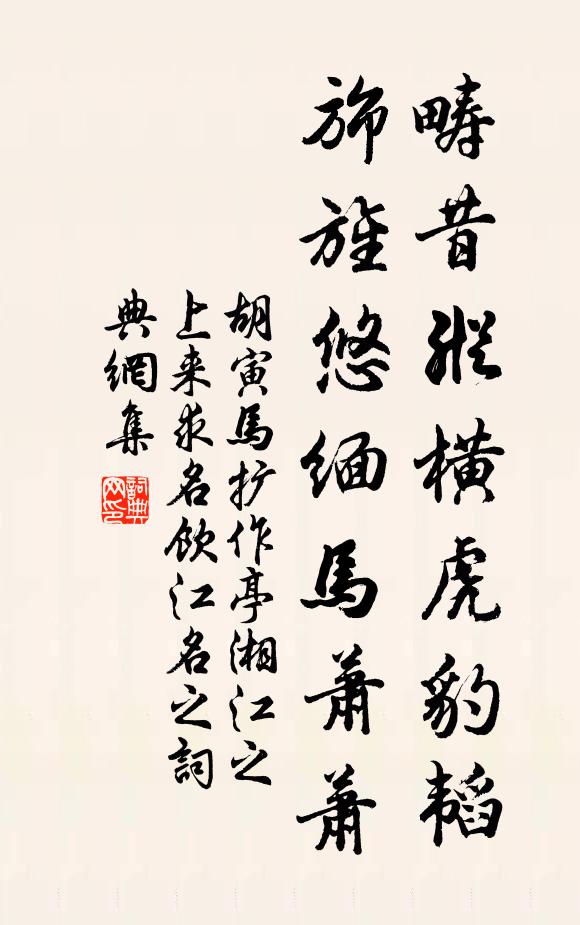 疇昔縱横虎豹韜
旆旌悠緬馬蕭蕭
胡寅馬扩作亭湘江之
上来求名飲江名之詞
典網集
詞典網印